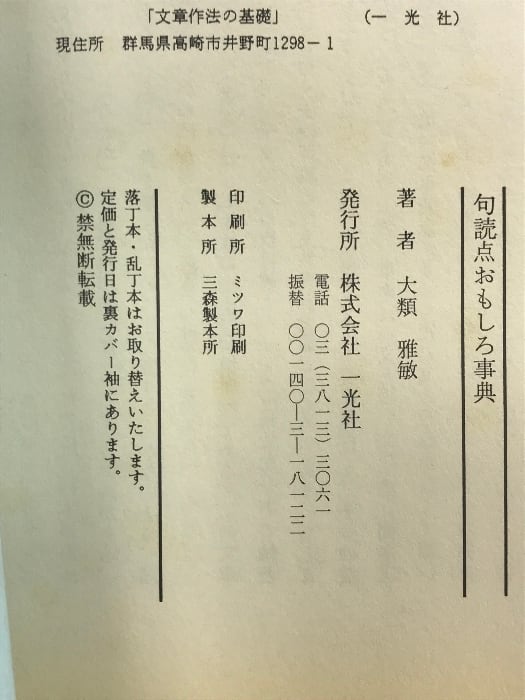 「文章作法の基礎」 (一光社)
現住所 群馬県高崎市井野町1298−1
句読点おもしろ事典
著者 大類 雅敏
発行所 株式会社 一光社
電話 〇三(三八一三)三〇六一
振替 〇〇一四〇―三―一八一二二
印刷所 ミツワ印刷
製本所 三森製本所
落丁本・乱丁本はお取り替えいたします。
定価と発行日は裏カバー袖にあります。
©禁無断転載